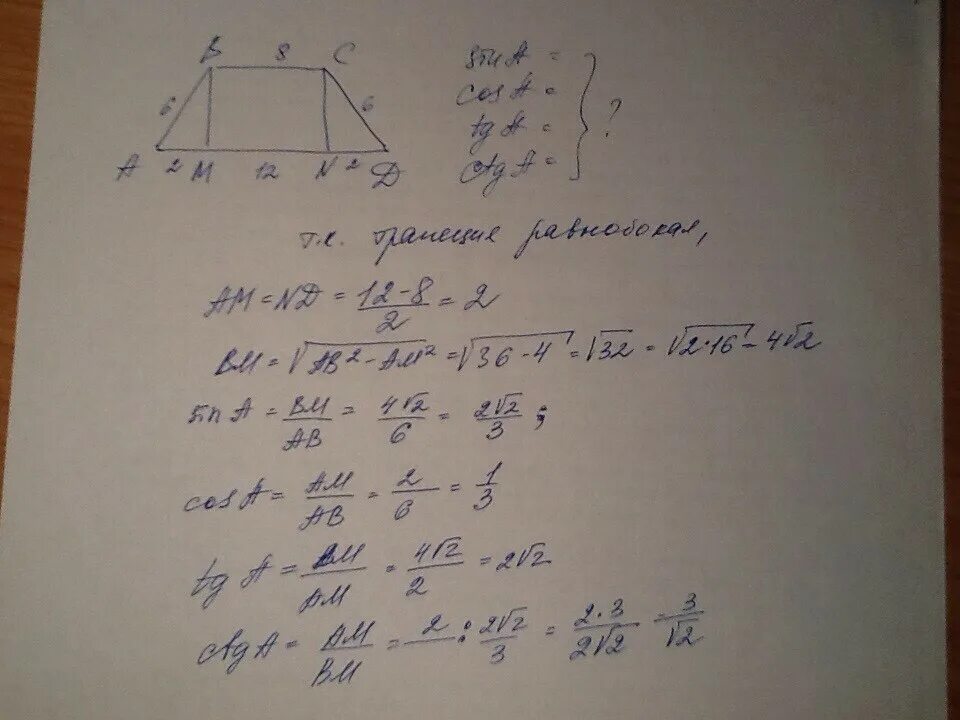 B 8 C
6 6
A 2 M 12 N 2 D
sin A =
cos A =
tg A =
ctg A =
?
т.к. трапеция равнобокая,
AM = ND = \frac{12-8}{2} = 2
BM = \sqrt{AB^2 - AM^2} = \sqrt{36-4} = \sqrt{32} = \sqrt{2·16} = 4\sqrt{2}
sin A = \frac{BM}{AB} = \frac{4\sqrt{2}}{6} = \frac{2\sqrt{2}}{3};
cos A = \frac{AM}{AB} = \frac{2}{6} = \frac{1}{3}
tg A = \frac{BM}{AM} = \frac{4\sqrt{2}}{2} = 2\sqrt{2}
ctg A = \frac{AM}{BM} = 2 : \frac{2\sqrt{2}}{3} = \frac{2·3}{2\sqrt{2}} = \frac{3}{\sqrt{2}}